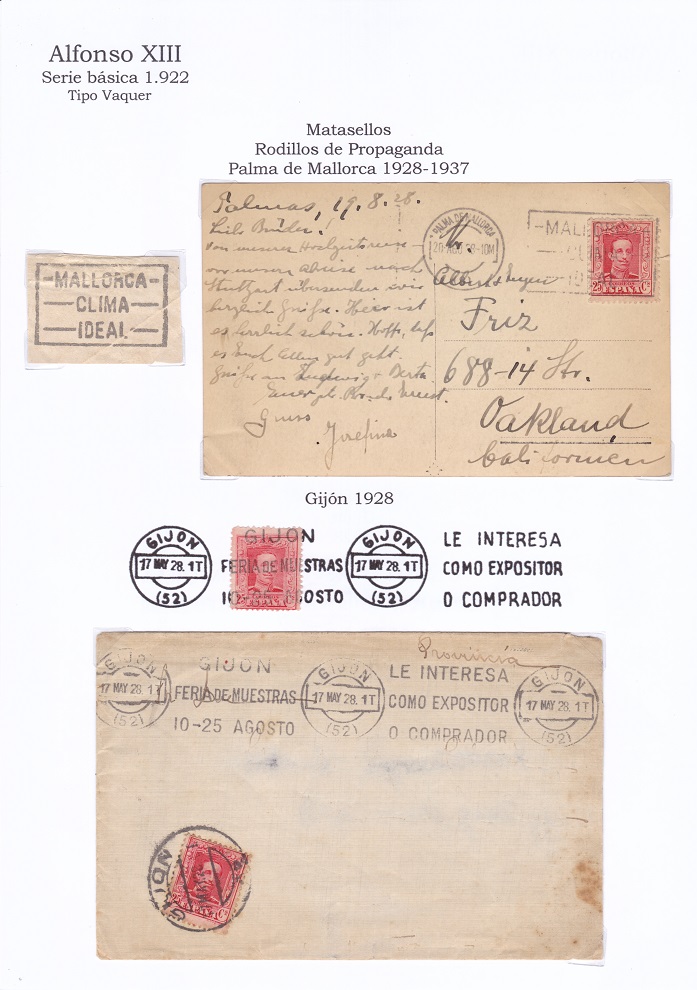 Alfonso XIII
Serie básica 1.922
Tipo Vaquer
Matasellos
Rodillos de Propaganda
Palma de Mallorca 1928-1937
-MALLORCA-
-CLIMA-
-IDEAL-
Palmas, 19.8.28.
Von unserer Hochzeitsreise
vor unserer Abreise nach
Stuttgart übersenden wir
herzlich Grüße. Hier ist
es herrlich schön. Hoff, daß
es Euch Allen gut geht.
Grüße an Ludwig + Berta
Josefine
PALMA DE MALLORCA
-MALL
CLIMA
25 ESPAÑA Cs
Friz
688-14 Str.
Oakland
Californien
Gijón 1928
GIJON
17 MAY 28. 1T
(52)
GIJON
FERIA DE MUESTRAS
10-25 AGOSTO
GIJON
17 MAY 28. 1T
(52)
LE INTERESA
COMO EXPOSITOR
O COMPRADOR
Provincia
GIJON
17 MAY 28. 1T
(52)
GIJON
FERIA DE MUESTRAS
10-25 AGOSTO
GIJON
17 MAY 28. 1T
(52)
LE INTERESA
COMO EXPOSITOR
O COMPRADOR
GIJON
17 MAY 28. 1T
(52)
GIJON
25 ESPAÑA Cs